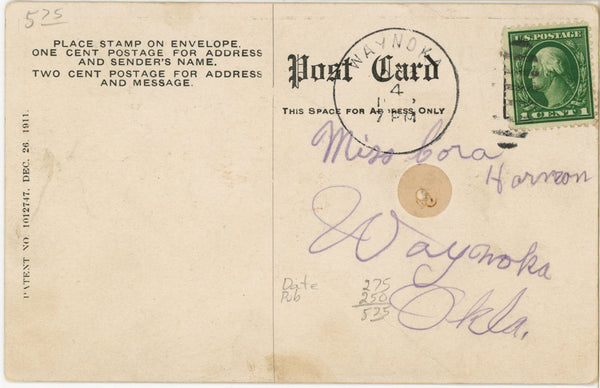 575
PLACE STAMP ON ENVELOPE.
ONE CENT POSTAGE FOR ADDRESS
AND SENDER'S NAME.
TWO CENT POSTAGE FOR ADDRESS
AND MESSAGE.
PATENT NO 1012747, DEC. 26, 1911.
Post Card
THIS SPACE FOR ADDRESS ONLY
WAYNOKA
4
7 PM
U.S. POSTAGE
1 CENT 1
Miss Cora
Harmon
Waynoka
Okla.
Date 275
Pub 250
525